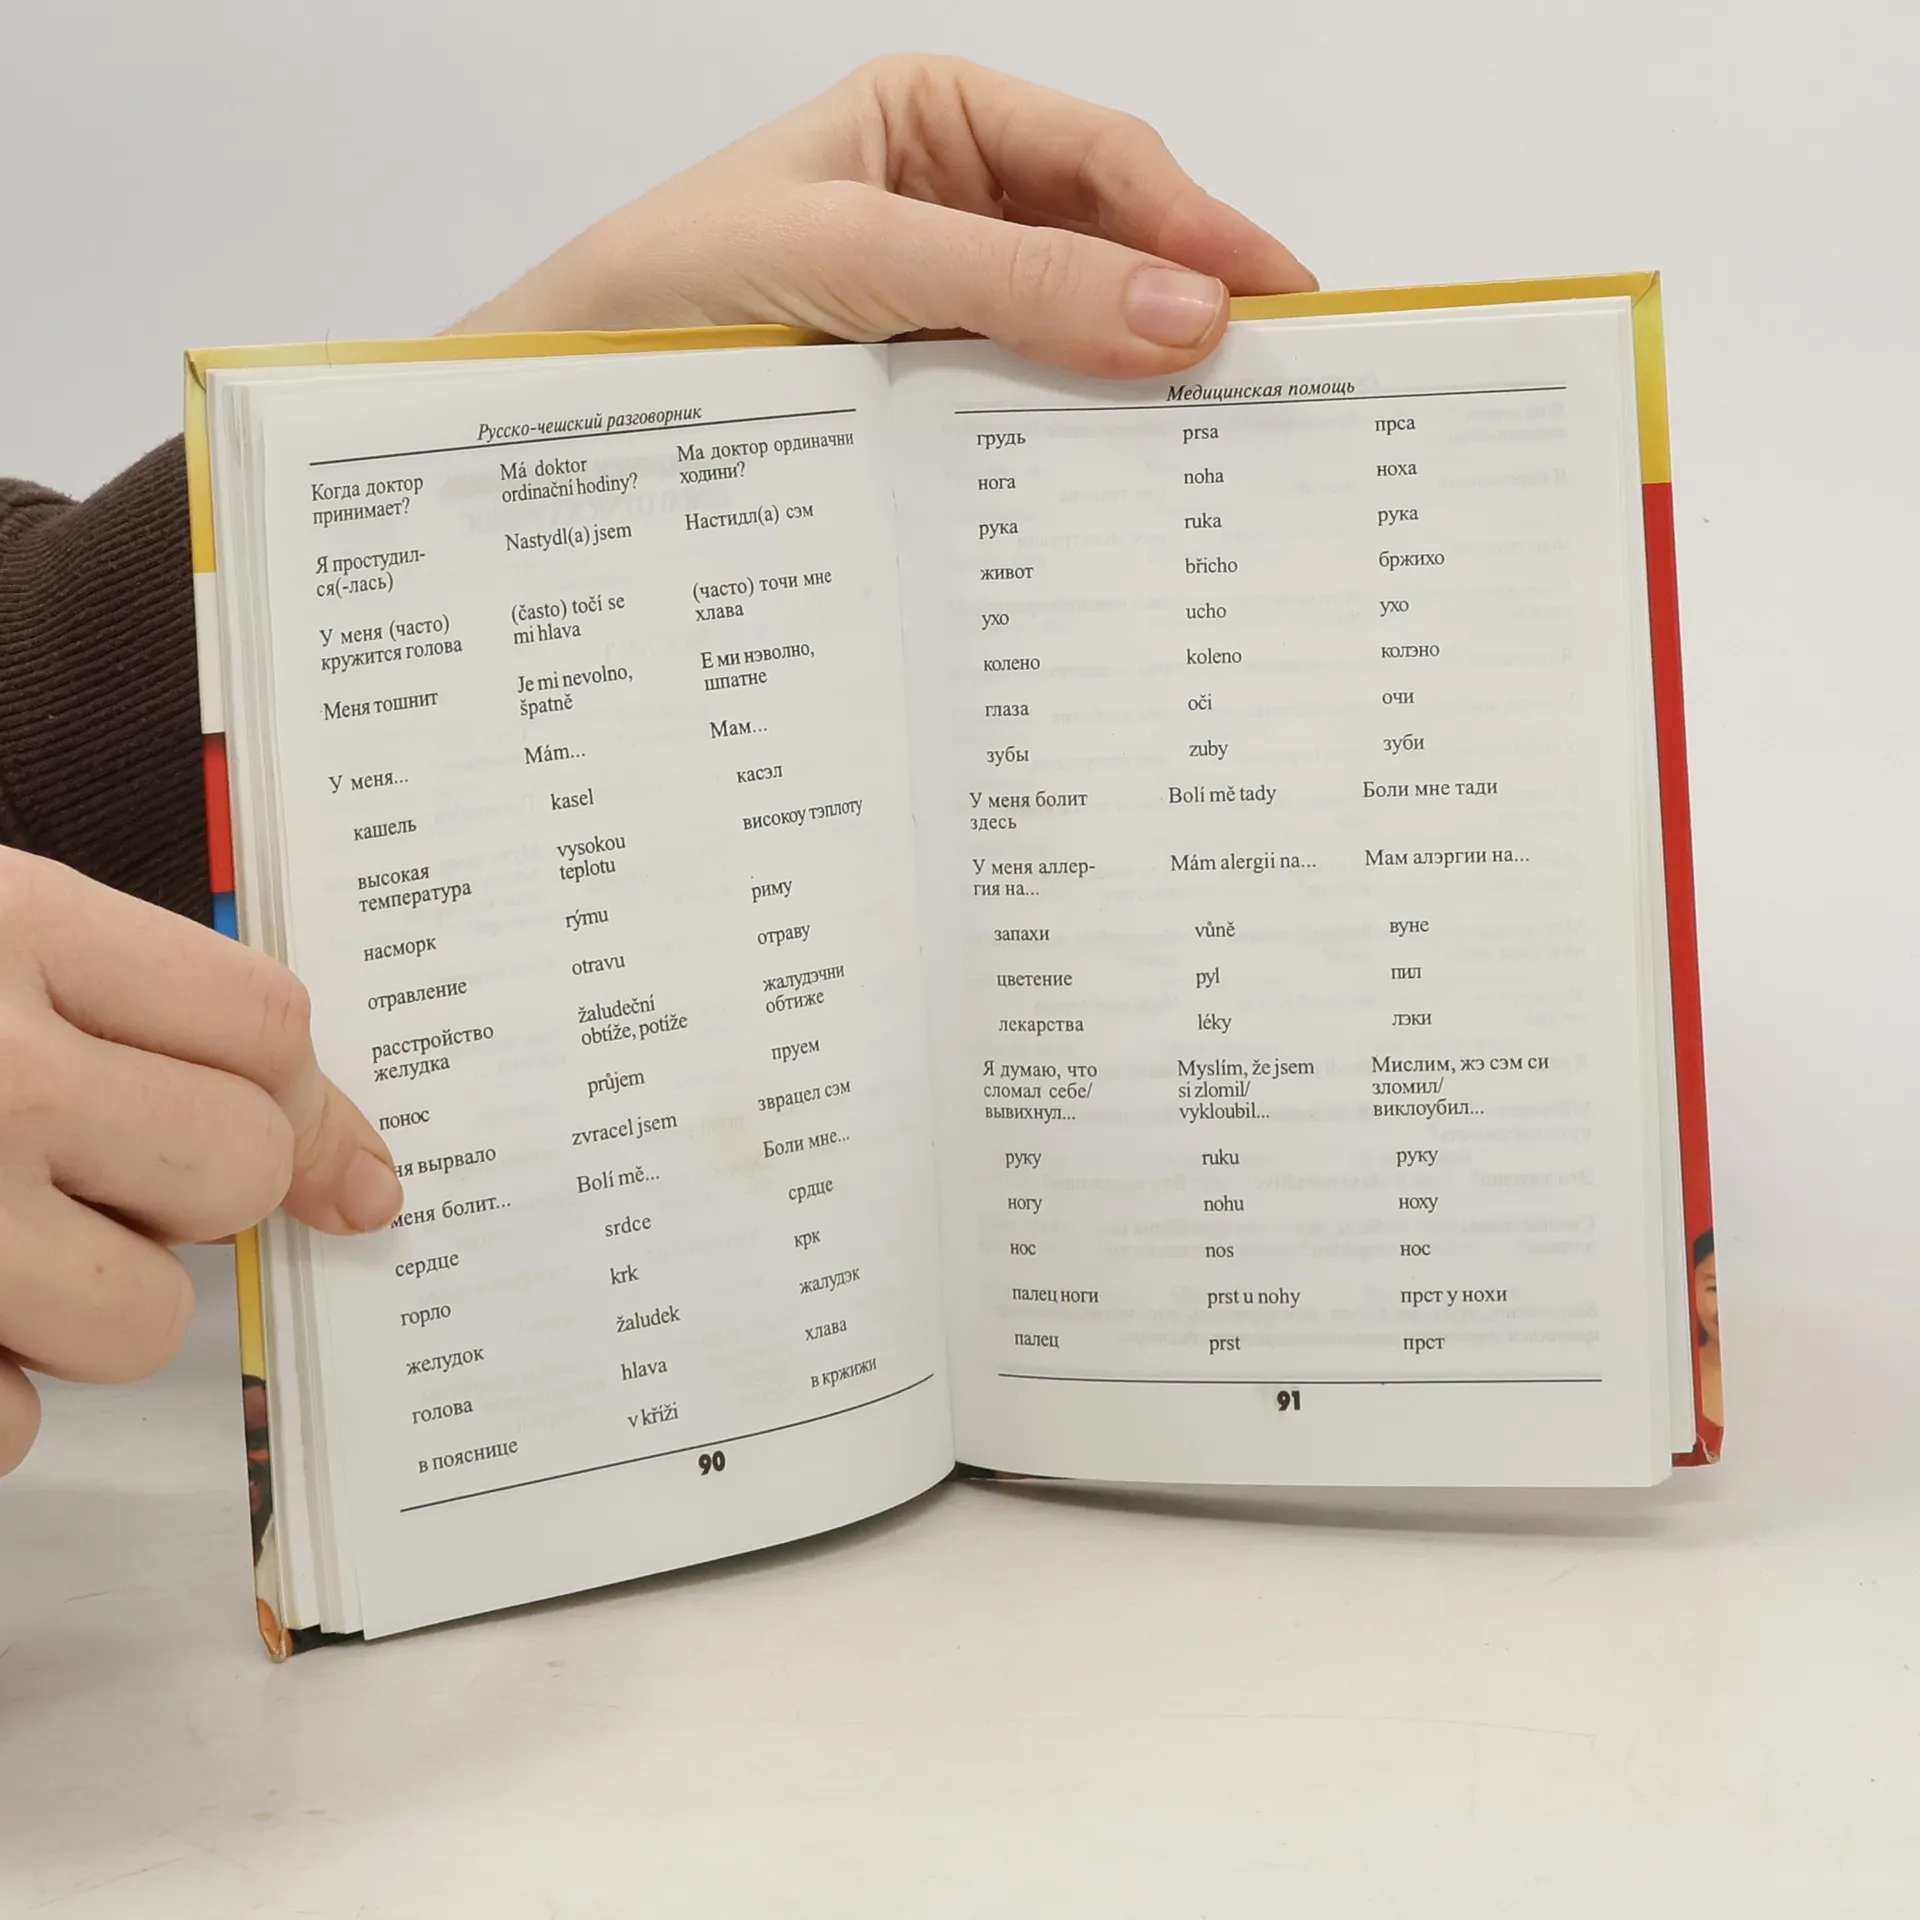 Русско-чешский разговорник
Когда доктор Má doktor Ма доктор ординачни
принимает? ordinační hodiny? ходини?
Я простудил- Nastydl(a) jsem Настидл(а) сэм
ся(-лась)
У меня (часто) (často) točí se (часто) точи мне
кружится голова mi hlava хлава
Меня тошнит Je mi nevolno, Е ми нэволно,
špatně шпатне
У меня... Mám... Мам...
кашель kasel касэл
высокая vysokou високоу тэплоту
температура teplotu
насморк rýmu риму
отравление otravu отраву
расстройство žaludeční жалудэчни
желудка obtíže, potíže обтиже
понос průjem пруем
ня вырвало zvracel jsem зврацел сэм
меня болит... Bolí mě... Боли мне...
сердце srdce срдце
горло krk крк
желудок žaludek жалудэк
голова hlava хлава
в пояснице v kříži в кржижи
90
Медицинская помощь
грудь prsa прса
нога noha ноха
рука ruka рука
живот břicho бржихо
ухо ucho ухо
колено koleno колэно
глаза oči очи
зубы zuby зуби
У меня болит Bolí mě tady Боли мне тади
здесь
У меня аллер- Mám alergii na... Мам алэргии на...
гия на...
запахи vůně вуне
цветение pyl пил
лекарства léky лэки
Я думаю, что Myslím, že jsem Мислим, жэ сэм си
сломал себе/ si zlomil/ зломил/
вывихнул... vykloubil... виклоубил...
руку ruku руку
ногу nohu ноху
нос nos нос
палец ноги prst u nohy прст у нохи
палец prst прст
91